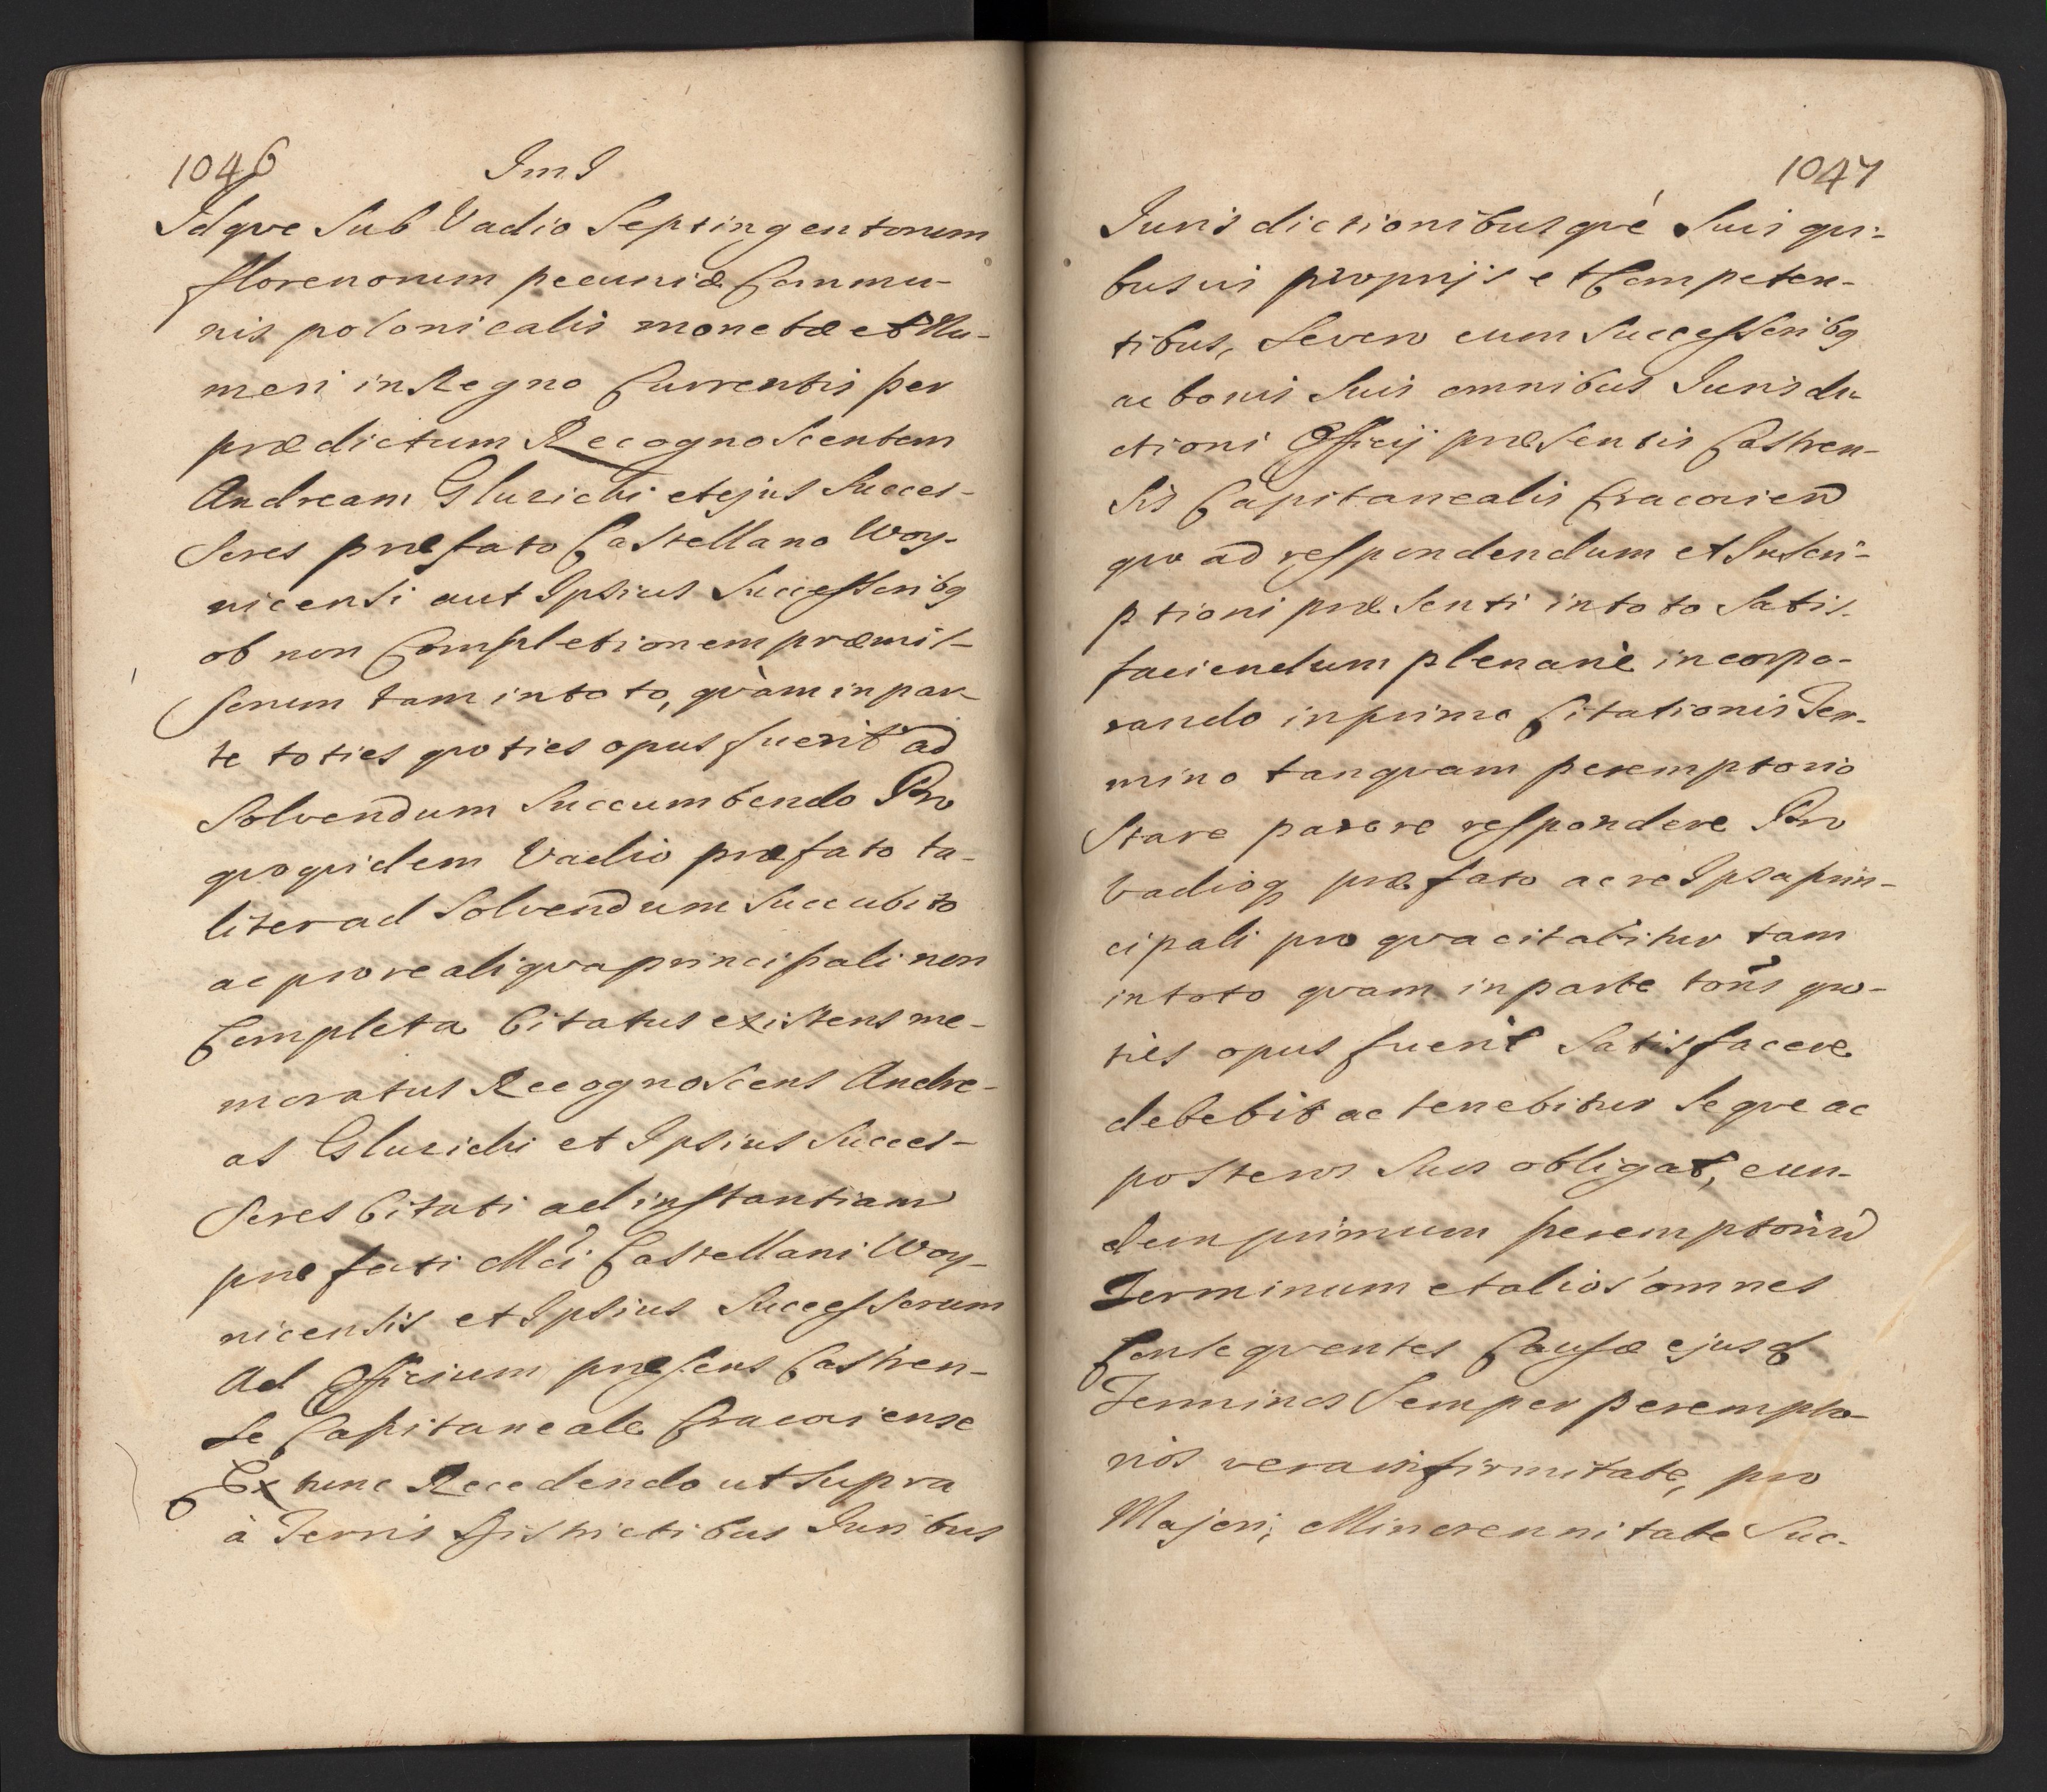 1046
ImI
Idqve Sub Vadio Septingentorum
florenorum pecuniæ Commu-
nis polonicalis monetæ et Nu-
meri in Regno Currentis per
prædictum Recognoscentem
Andream Gluzicki et ejus Succes-
sores præfato Castellano Woy-
nicensi aut Ipsius Successoribq
ob non Completionem præmis-
sorum tam in toto, qvàm in par-
te toties qvoties opus fuerit ad
Solvendum Succumbendo Pro
qvoqvidem Vadio præfato ta-
liter ad Solvendum Succubito
ac pro re aliqva principali non
Completa Citatus existens me-
moratus Recognoscens Andre-
as Gluzicki et Ipsius Succes-
sores Citati ad instantiam
præfati Mci Castellani Woy-
nicensis et Ipsius Successorum
Ad Officium præsens Castren-
se Capitaneale Cracoviense
Ex tunc Recedendo ut Supra
à Terris Districtibus Juribus
1047
Jurisdictionibusqvè Suis qvi-
busvis proprijs et Competen-
tibus, Severo cum Successoribq
ac bonis Suis omnibus Jurisdi-
ctioni Officij præsentis Castren-
sis Capitanealis Cracovien
qvo ad respondendum et Inscri-
ptioni præsenti in toto Satis-
faciendum plenariè incorpo-
rando in primo Citationis Ter-
mino tanqvam peremptorio
Stare parere respondere Pro
Vadioq præfato ac re Ipsa prin-
cipali pro qva citabitur tam
in toto qvam in parte toties qvo-
ties opus fuerit Satisfacere
debebit ac tenebitur Seqve ac
posteros Suos obligat, eun-
dem primum peremptoriu
Terminum et alios omnes
Conseqventes Causæ ejusd
Terminos Semper perempto-
rios vera infirmitate, pro
Majori, Minorennitate Suc-